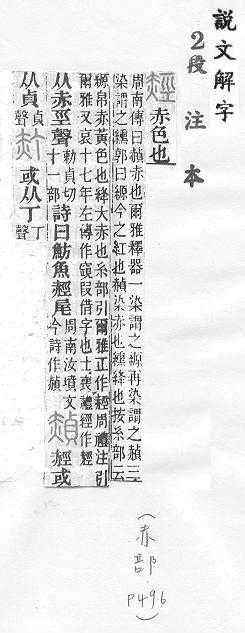 説文解字
2段注本
經 赤色也
周南傳曰赬赤也爾雅釋器一染謂之縓再染謂之赬三
染謂之纁郭曰縓今之紅也赬染赤也纁絳也按糸部云
縓帛赤黃色也絳大赤也糸部引爾雅正作䞓周禮注引
爾雅又哀十七年左傳作窺叚借字也士喪禮經作䞓
从赤巠聲 敕貞切十一部 詩曰魴魚䞓尾 周南汝墳文今詩作赬 赬 䞓或
从貞 貞聲 䞓或从丁 丁聲
(赤部
P496)